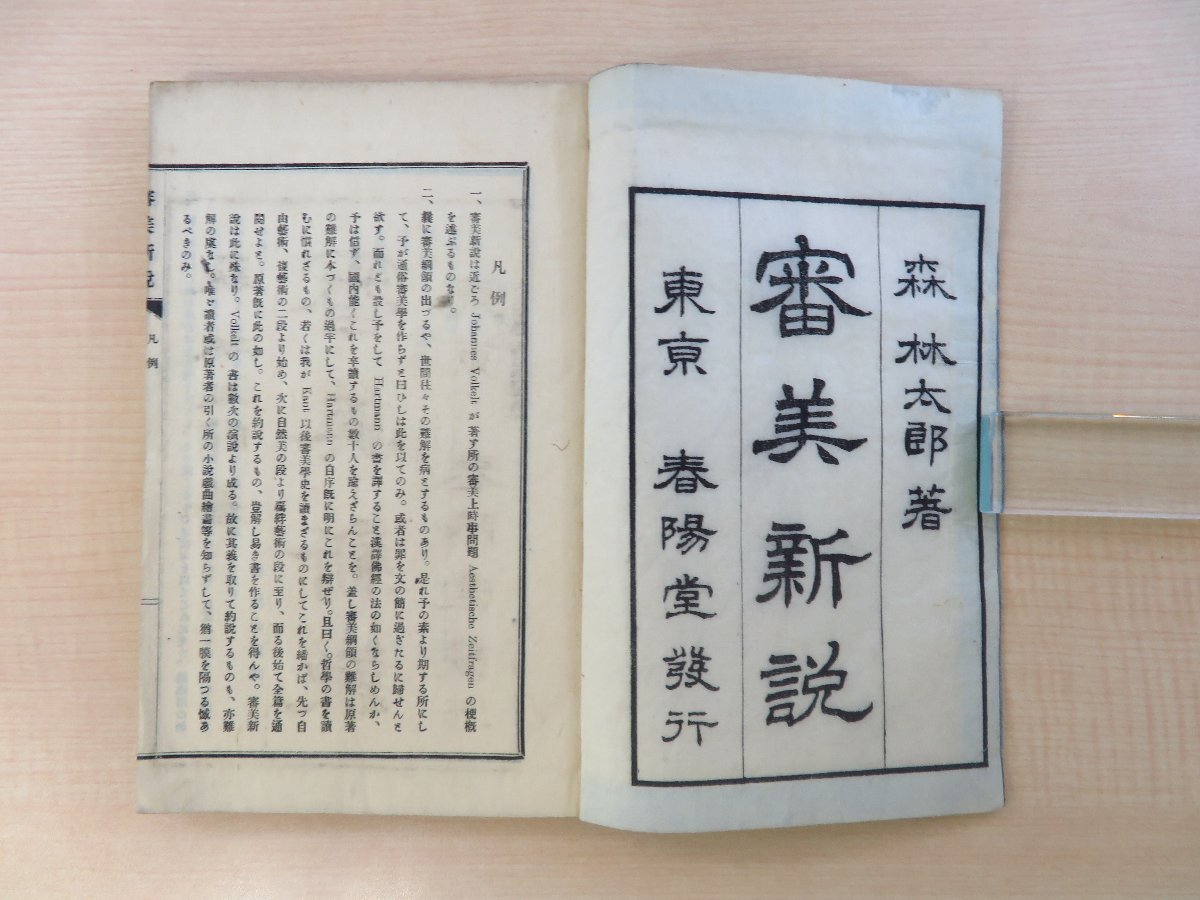 森林太郎著
審美新説
東京 春陽堂發行
凡例
一、審美新說は近ごろ Johannes Volkelt が著す所の審美上時事問題 Aesthetische Zeitfragen の梗概
を述ぶるものなり。
二、曩に審美綱領の出づるや、世間往々その難解を病とするものあり。是れ予の素より期する所にし
て、予が通俗審美學を作らずと曰ひしは此を以てのみ。或者は罪を文の簡に過ぎたるに歸せんと
欲す。而れども設し予をして Hartmann の書を譯すること漢譯佛經の法の如くならしめんか、
予は信ず、國內能くこれを卒讀するもの數十人を踰えざらんことを。蓋し審美綱領の難解は原著
の難解に本づくもの過半にして、Hartmann の自序旣に明にこれを辯ぜり。且曰く。哲學の書を讀
むに慣れざるもの、若くは我が Kant 以後審美學史を讀まざるものにしてこれを繙かば、先づ自
由藝術、複藝術の二段より始め、次に自然美の段より覊絆藝術の段に至り、而る後始て全篇を通
閱せよと。原著旣に此の如し。これを約說するもの、豈解し易き書を作ることを得んや。審美新
說は此に殊なり。Volkelt の書は數次の演說より成る。故に其義を取りて約說するものも、亦難
解の虞なし。唯〻讀者或は原著者の引く所の小說戲曲繪畫等を知らずして、猶一膜を隔つる憾あ
るべきのみ。
審美新說 凡例